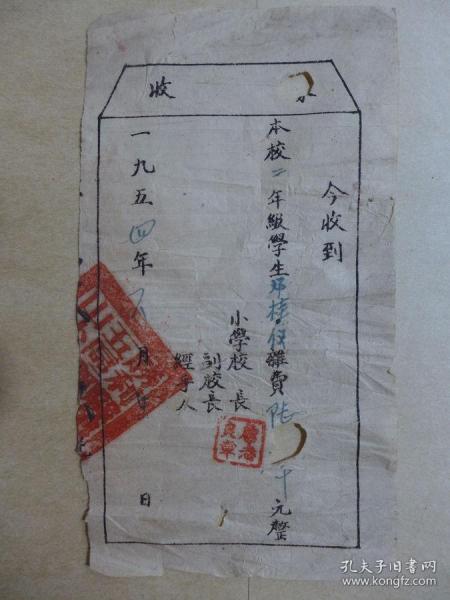 收
今收到
本校二年級學生鄧桂仪雜費陆 仟元整
小學校 長
副校長
經手人
一九五四年 月 日
孔夫子旧书网
www.kongfz.com